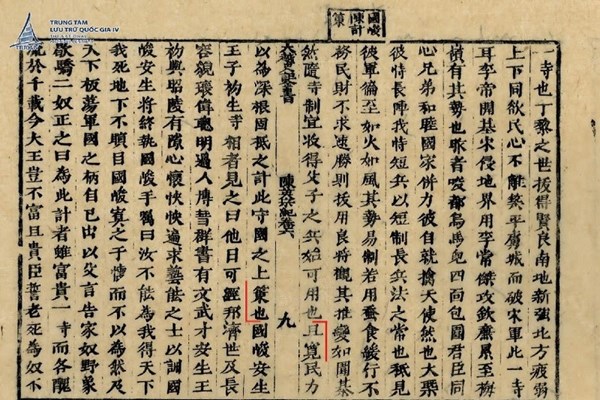 TRUNG TÂM
LƯU TRỮ QUỐC GIA IV
國峻
陳計
策
一寺也丁黎之世拔得賢良南地新強北方疲弱
上下同欲民心不離築平虜城而破宋軍此一寺
耳李帝開基宋侵地界用李常傑攻欽廉累至梅
嶺有其勢也曩者唆都烏馬児四面包囬君臣同
心兄弟和睦國家併力彼自就擒天使然也大槩
彼恃長陣我恃短兵以短制長兵法之常也秖見
彼軍俻至如火如風其勢易制若用蚕食緩行不
務民財不求速勝則拔用良將觀其推變如圍棊
然隨寺制宜收得父子之兵始可用也且寬民力
大越史記全書 陳英宗紀卷六 九
以為深根固柢之計此守國之上策也國峻安生
王子初生寺相者見之曰他日可經邦濟世及長
容貌瓌偉聰明過人博群書有文武才安生王
初與昭陵有隙心懷怏怏遍求藝能之士以訓國
峻安生將終執國峻手囑曰汝不能為我得天下
我死地下不瞑目國峻寘之于懷而不以為然及
天下板蕩軍國之柄自己出以父言告家奴野象
歇驕二奴正之曰為此計者雖富貴一寺而各醜
流於千載今大王豈不富且貴臣誓老死為奴不